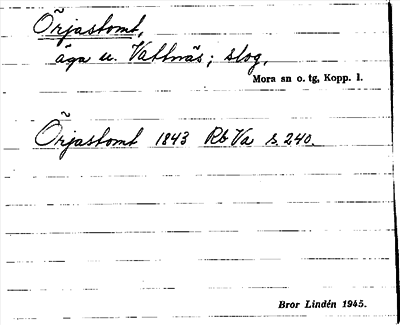 Õrjastomt,
äga u. Vattnäs; slog,
Mora sn o. tg, Kopp. l.
Õrjastomt 1843 Rb Va s. 240.
Bror Lindén 1945.